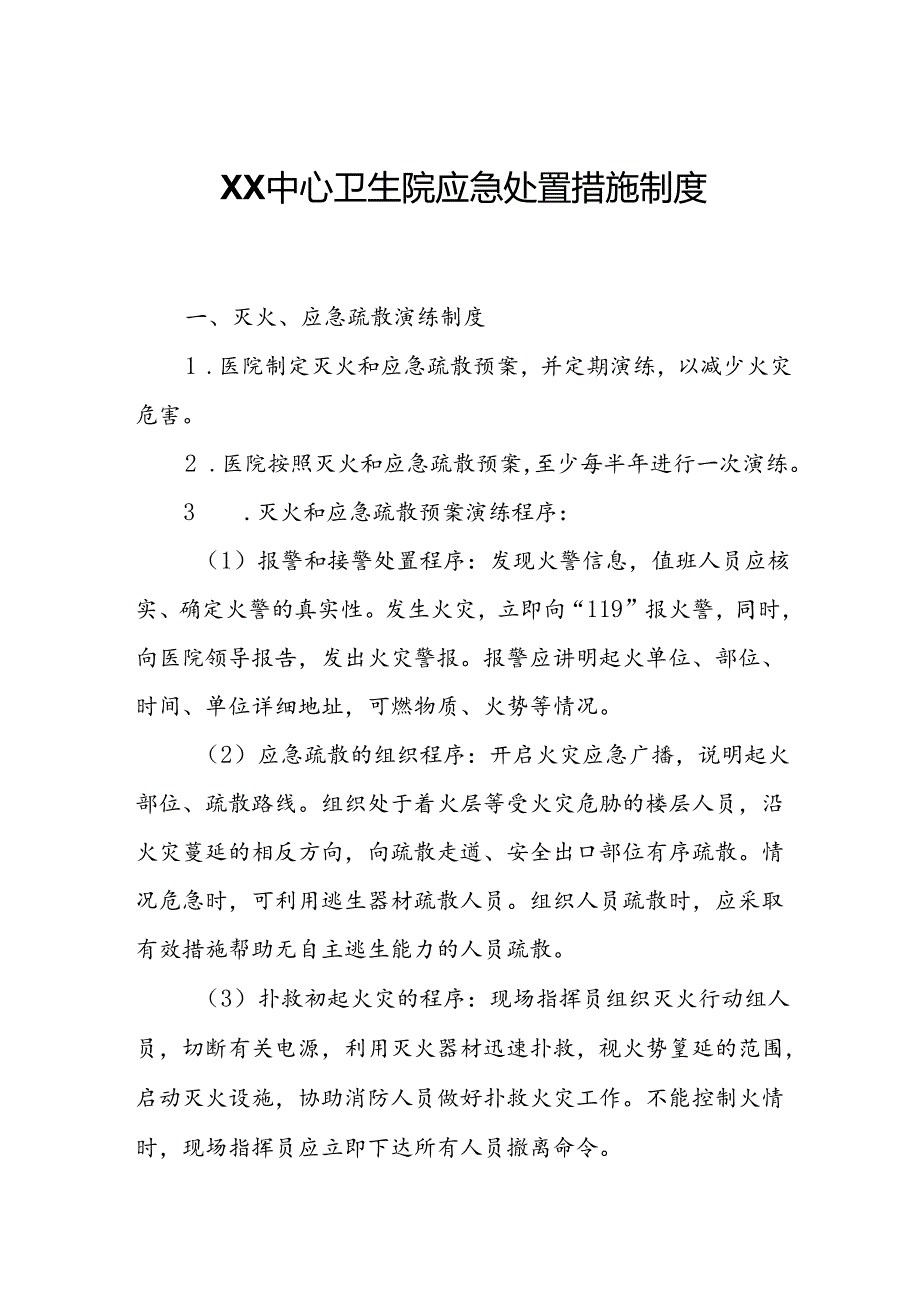 XX中心卫生院应急处置措施制度
一、灭火、应急疏散演练制度
1.医院制定灭火和应急疏散预案，并定期演练，以减少火灾
危害。
2.医院按照灭火和应急疏散预案，至少每半年进行一次演练。
3 .灭火和应急疏散预案演练程序：
（1）报警和接警处置程序：发现火警信息，值班人员应核
实、确定火警的真实性。发生火灾，立即向“119”报火警，同时，
向医院领导报告，发出火灾警报。报警应讲明起火单位、部位、
时间、单位详细地址，可燃物质、火势等情况。
（2）应急疏散的组织程序：开启火灾应急广播，说明起火
部位、疏散路线。组织处于着火层等受火灾危胁的楼层人员，沿
火灾蔓延的相反方向，向疏散走道、安全出口部位有序疏散。情
况危急时，可利用逃生器材疏散人员。组织人员疏散时，应采取
有效措施帮助无自主逃生能力的人员疏散。
（3）扑救初起火灾的程序：现场指挥员组织灭火行动组人
员，切断有关电源，利用灭火器材迅速扑救，视火势篁延的范围，
启动灭火设施，协助消防人员做好扑救火灾工作。不能控制火情
时，现场指挥员应立即下达所有人员撤离命令。